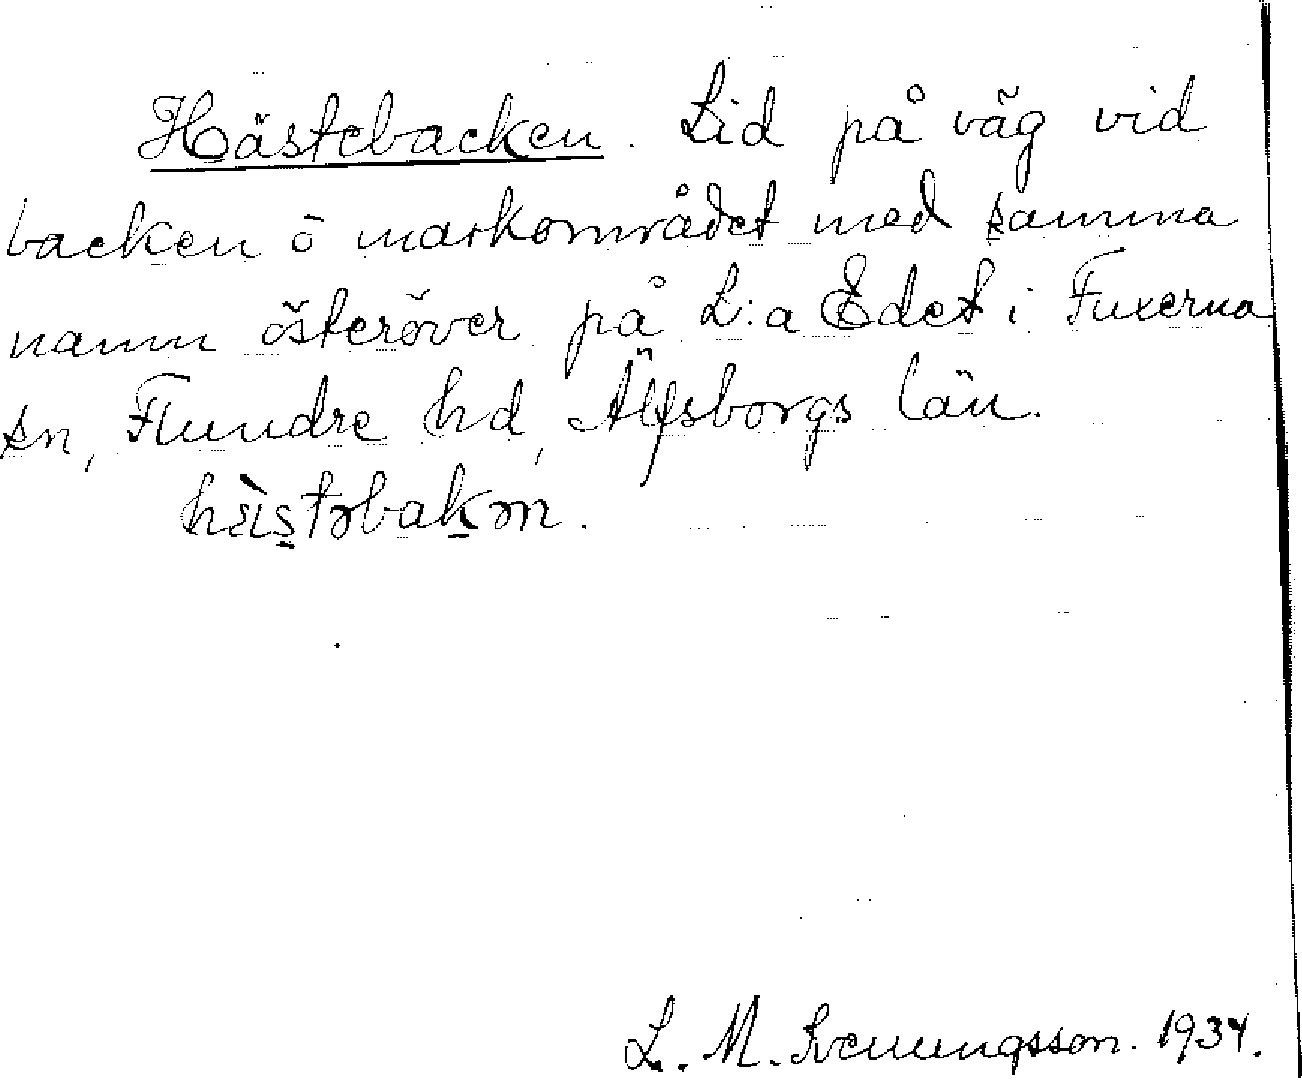 Hästebacken. Lid på väg vid
backen o markområdet med samma
namn österöver på L:a Edet i Fuxerna
sn, Flundre hd, Älfsborgs län.
L. M. Svenungsson. 1934.